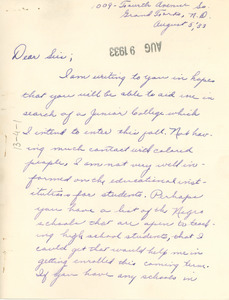 1009- Fourth Avenue So.
Grand Forks, N.D.
August 5, '33
AUG 9 1933
Dear Sir;
I am writing to you in hopes
that you will be able to aid me in
search of a Junior College which
I intend to enter this fall. Not hav-
ing much contact with colored
people, I am not very well in-
formed on the educational inst-
itutions for students. Perhaps
you have a list of the Negro
schools that are open to teach-
ing high school students, that I
could get that would help me in
getting enrolled this coming term.
If you have any schools in
13-4-1